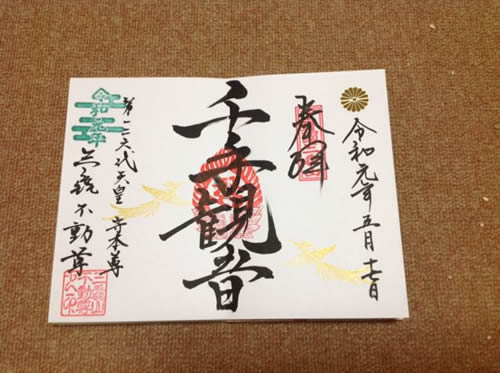 令和元年五月十七日
奉拝
千手観音
第一二六代天皇 寺本尊
令和元年
三瀧不動尊